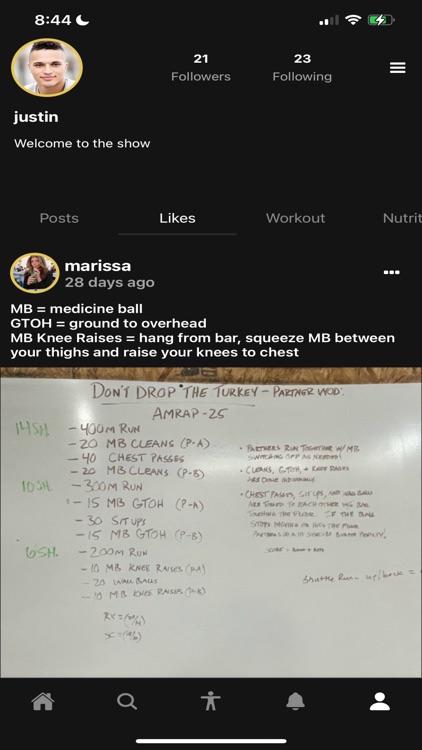 8:44
21
23
Followers
Following
justin
Welcome to the show
Posts
Likes
Workout
Nutrit
marissa
28 days ago
MB = medicine ball
GTOH = ground to overhead
MB Knee Raises = hang from bar, squeeze MB between
your thighs and raise your knees to chest
DON'T DROP THE TURKEY - PARTNER WOD.
AMRAP-25
14SH.
- 400M RUN
- 20 MB CLEANS (P-A)
- 40 CHEST PASSES
- 20 MB CLEANS (P-B)
10SH.
- 300M RUN
- 15 MB GTOH (P-A)
- 30 SIT UPS
- 15 MB GTOH (P-B)
6SH.
- 200M RUN
- 10 MB KNEE RAISES (P-A)
- 20 WALL BALLS
- 10 MB KNEE RAISES (P-B)
• PARTNERS RUN TOGETHER W/ MB
SWITCHING OFF AS NEEDED!
• CLEANS, GTOH, + KNEE RAISES
ARE DONE INDIVIDUALLY
• CHEST PASSES, SIT UPS, AND WALL BALLS
ARE TOSSED TO EACH OTHER
TOUCHING THE FLOOR. IF THE BALL
STOPS MOVING OR HITS THE FLOOR
PENALTY!
SCORE =
shuttle Run - up/back =
RX =